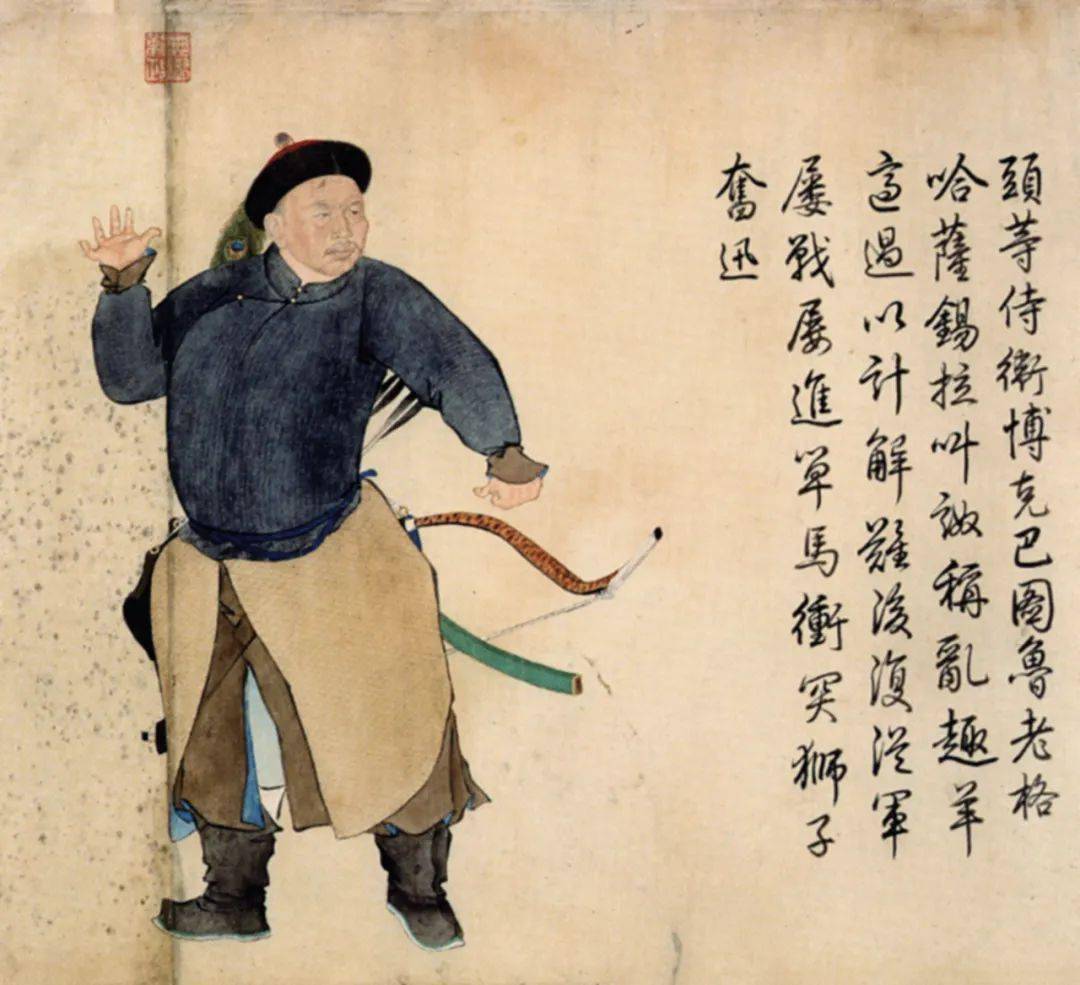 頭等侍衛博克巴圖魯老格
哈薩錫拉叫稱亂趣羊
適以計解難後復從軍
屢戰屢進單馬衝突獅子
奮迅